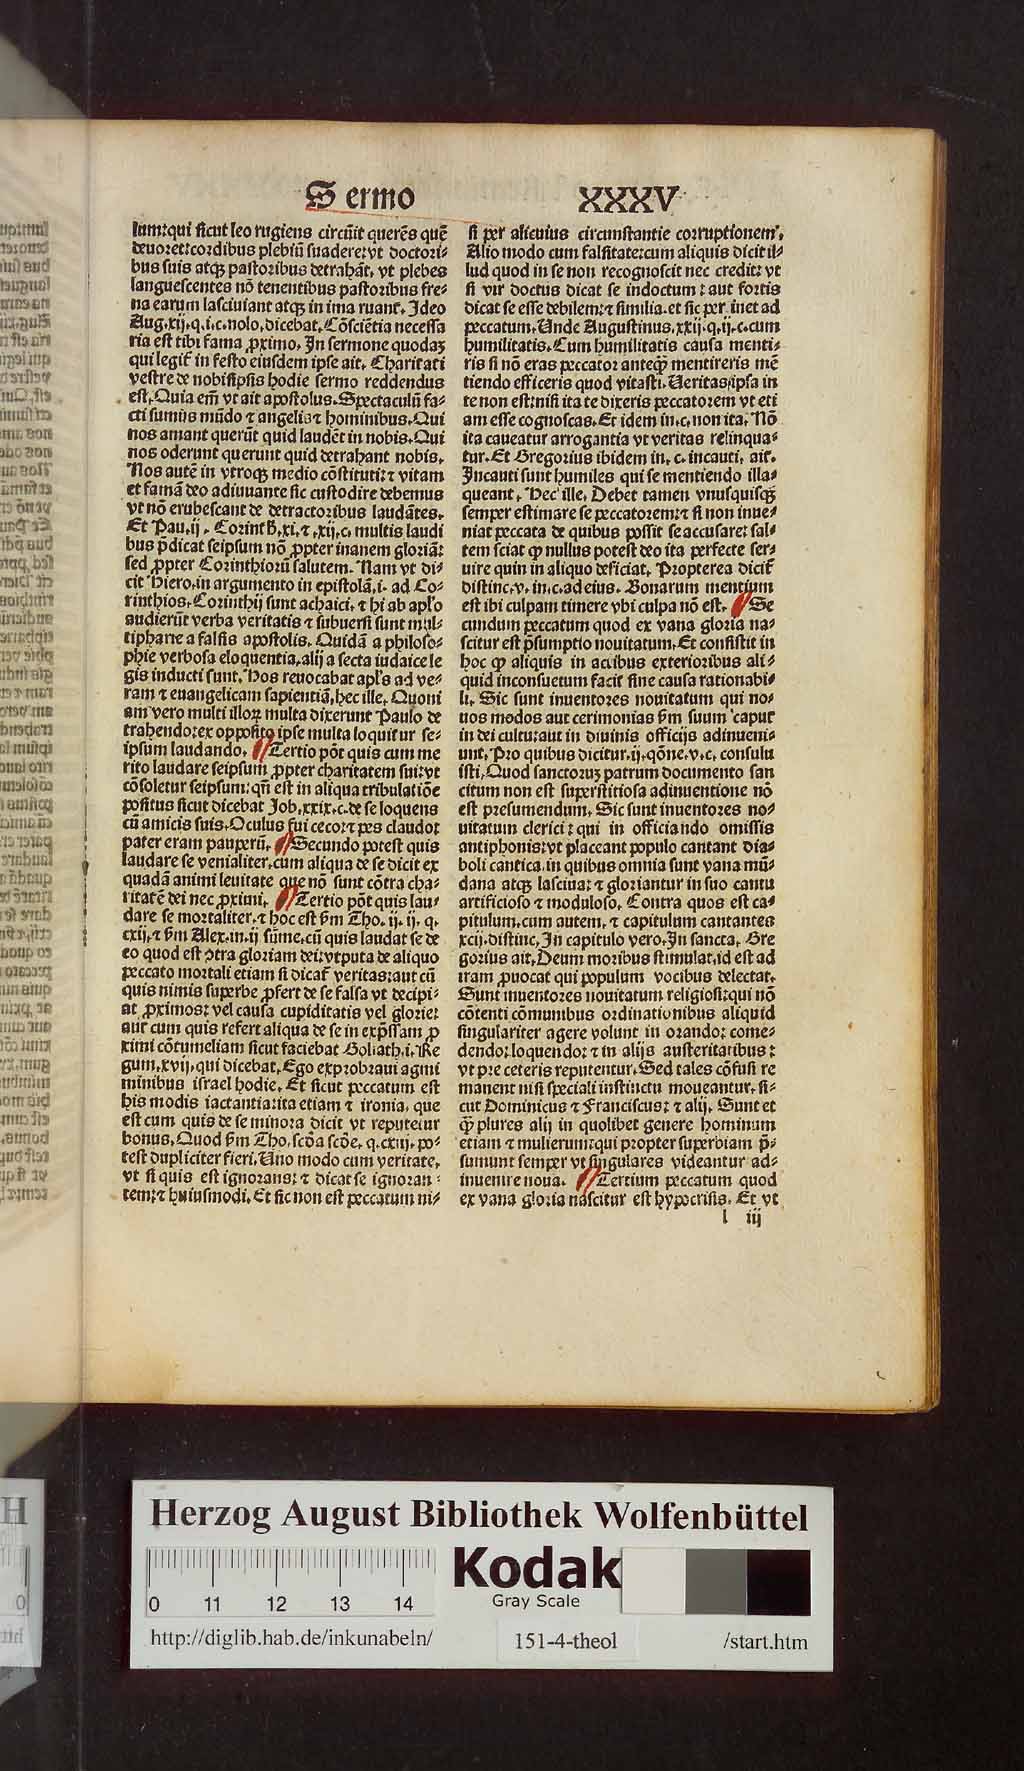 Sermo XXXV
lum: qui sicut leo rugiens circũit querẽs quẽ
deuoret: cordibus plebiũ suadere: vt doctori⸗
bus suis atqꝫ pastoribus detrahãt, vt plebes
languescentes nõ tenentibus pastoribus fre⸗
na earum lasciuiant atqꝫ in ima ruant. Ideo
Aug. xij. q. i. c. nolo, dicebat. Cõsciẽtia necessa
ria est tibi fama ꝓximo. In sermone quodaꝫ
qui legit᷑ in festo eiusdem ipse ait. Charitati
vestre de nobisipsis hodie sermo reddendus
est. Quia em̃ vt ait apostolus. Spectaculũ fa⸗
cti sumus mũdo ⁊ angelis ⁊ hominibus. Qui
nos amant querũt quid laudẽt in nobis. Qui
nos oderunt querunt quid detrahant nobis.
Nos autẽ in vtroqꝫ medio cõstituti: ⁊ vitam
et famã deo adiuuante sic custodire debemus
vt nõ erubescant de detractoribus laudãtes.
Et Pau. ij. Corinth. xi. ⁊ .xij. c. multis laudi
bus p̃dicat seipsum nõ ꝓpter inanem gloriã:
sed ꝓpter Corinthiorũ salutem. Nam vt di⸗
cit Hiero. in argumento in epistolã. i. ad Co⸗
rinthios. Corinthij sunt achaici. ⁊ hi ab apl'o
audierũt verba veritatis ⁊ subuersi sunt mul⸗
tipharie a falsis apostolis. Quidã a philoso⸗
phie verbosa eloquentia. alij a secta iudaice le
gis inducti sunt. Hos reuocabat apl's ad ve⸗
ram ⁊ euangelicam sapientiã, hec ille. Quoni
am vero multi illoꝝ multa dixerunt Paulo de
trahendo: ex opposito ipse multa loquitur se⸗
ipsum laudando. Tertio põt quis cum me
rito laudare seipsum ꝓpter charitatem sui: vt
cõsoletur seipsum: qñ est in aliqua tribulatiõe
positus sicut dicebat Job. xxix. c. de se loquens
cũ amicis suis. Oculus fui ceco: ⁊ pes claudo:
pater eram pauperũ. Secundo potest quis
laudare se venialiter. cum aliqua de se dicit ex
quadã animi leuitate que nõ sunt cõtra cha⸗
ritatẽ dei nec ꝓximi. Tertio põt quis lau⸗
dare se mortaliter. ⁊ hoc est ẜm Tho. ij. ij. q.
cxij. ⁊ ẜm Alex. in .ij sũme. cũ quis laudat se de
eo quod est ꝯtra gloriam dei: vtputa de aliquo
peccato mortali etiam si dicat᷑ veritas: aut cũ
quis nimis superbe ꝓfert de se falsa vt decipi⸗
at ꝓximos: vel causa cupiditatis vel glorie:
aut cum quis refert aliqua de se in exp̃ssam ꝓ
ximi cõtumeliam sicut faciebat Goliath. i. Re
gum. xvij. qui dicebat. Ego exprobraui agmi
minibus israel hodie. Et sicut peccatum est
his modis iactantia: ita etiam ⁊ ironia, que
est cum quis de se minora dicit vt reputetur
bonus. Quod ẜm Tho. scõa scõe. q. cxiij. po⸗
test dupliciter fieri. Uno modo cum veritate.
vt si quis est ignorans: ⁊ dicat se ignoran⸗
tem: ⁊ huiusmodi. Et sic non est peccatum ni⸗
si per alicuius circumstantie corruptionem.
Alio modo cum falsitate: cum aliquis dicit il⸗
lud quod in se non recognoscit nec credit: vt
si vir doctus dicat se indoctum: aut fortis
dicat se esse debilem: ⁊ similia. et sic pertinet ad
peccatum. Unde Augustinus. xxij. q. ij. c. cum
humilitatis. Cum humilitatis causa menti⸗
ris si nõ eras peccator anteqꝫ̃ mentireris mẽ
tiendo efficeris quod vitasti. Ueritas ipsa in
te non est: nisi ita te dixeris peccatorem vt eti
am esse cognoscas. Et idem in. c. non ita. Nõ
ita caueatur arrogantia vt veritas relinqua⸗
tur. Et Gregorius ibidem in. c. incauti, ait.
Incauti sunt humiles qui se mentiendo illa⸗
queant. Hec ille. Debet tamen vnusquisqꝫ
semper estimare se peccatorem: ⁊ si non inue⸗
niat peccata de quibus possit se accusare: sal⸗
tem sciat ꝙ nullus potest deo ita perfecte ser⸗
uire quin in aliquo deficiat. Propterea dicit᷑
distinc. v. in. c. ad eius. Bonarum mentium
est ibi culpam timere vbi culpa nõ est. Se
cundum peccatum quod ex vana gloria na⸗
scitur est p̃sumptio nouitatum. Et consistit in
hoc ꝙ aliquis in actibus exterioribus ali⸗
quid inconsuetum facit sine causa rationabi⸗
li. Sic sunt inuentores nouitatum qui no⸗
uos modos aut cerimonias ẜm suum caput
in dei cultu: aut in diuinis officijs adinueni⸗
unt. Pro quibus dicitur. ij. qõne. v. c. consulu
isti. Quod sanctoruꝫ patrum documento san
citum non est superstitiosa adinuentione nõ
est presumendum. Sic sunt inuentores no⸗
uitatum clerici: qui in officiando omissis
antiphonis: vt placeant populo cantant dia⸗
boli cantica. in quibus omnia sunt vana mũ⸗
dana atqꝫ lasciua: ⁊ gloriantur in suo cantu
artificioso ⁊ moduloso. Contra quos est ca⸗
pitulum. cum autem. ⁊ capitulum cantantes
xcij. distinc. In capitulo vero. In sancta. Gre
gorius ait. Deum moribus stimulat, id est ad
iram ꝓuocat qui populum vocibus delectat.
Sunt inuentores nouitatum religiosi: qui nõ
cõtenti cõmunibus ordinationibus aliquid
singulariter agere volunt in orando: come⸗
dendo: loquendo: ⁊ in alijs austeritatibus:
vt pre ceteris reputentur. Sed tales cõfusi re
manent nisi speciali instinctu moueantur. si⸗
cut Dominicus ⁊ Franciscus: ⁊ alij. Sunt et
ꝙ̃ plures alij in quolibet genere hominum
etiam ⁊ mulierum: qui propter superbiam p̃⸗
sumunt semper vt singulares videantur ad⸗
inuenire noua. Tertium peccatum quod
ex vana gloria nascitur est hypocrisis. Et vt
l iij
Herzog August Bibliothek Wolfenbüttel
Kodak
Gray Scale
0 11 12 13 14
http://diglib.hab.de/inkunabeln/ 151-4-theol /start.htm